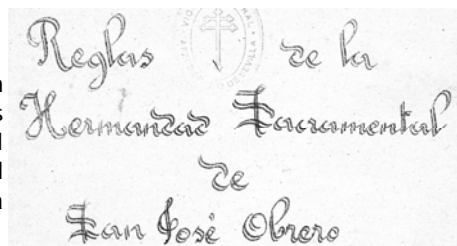 Reglas de la
Hermandad Sacramental
de
San José Obrero